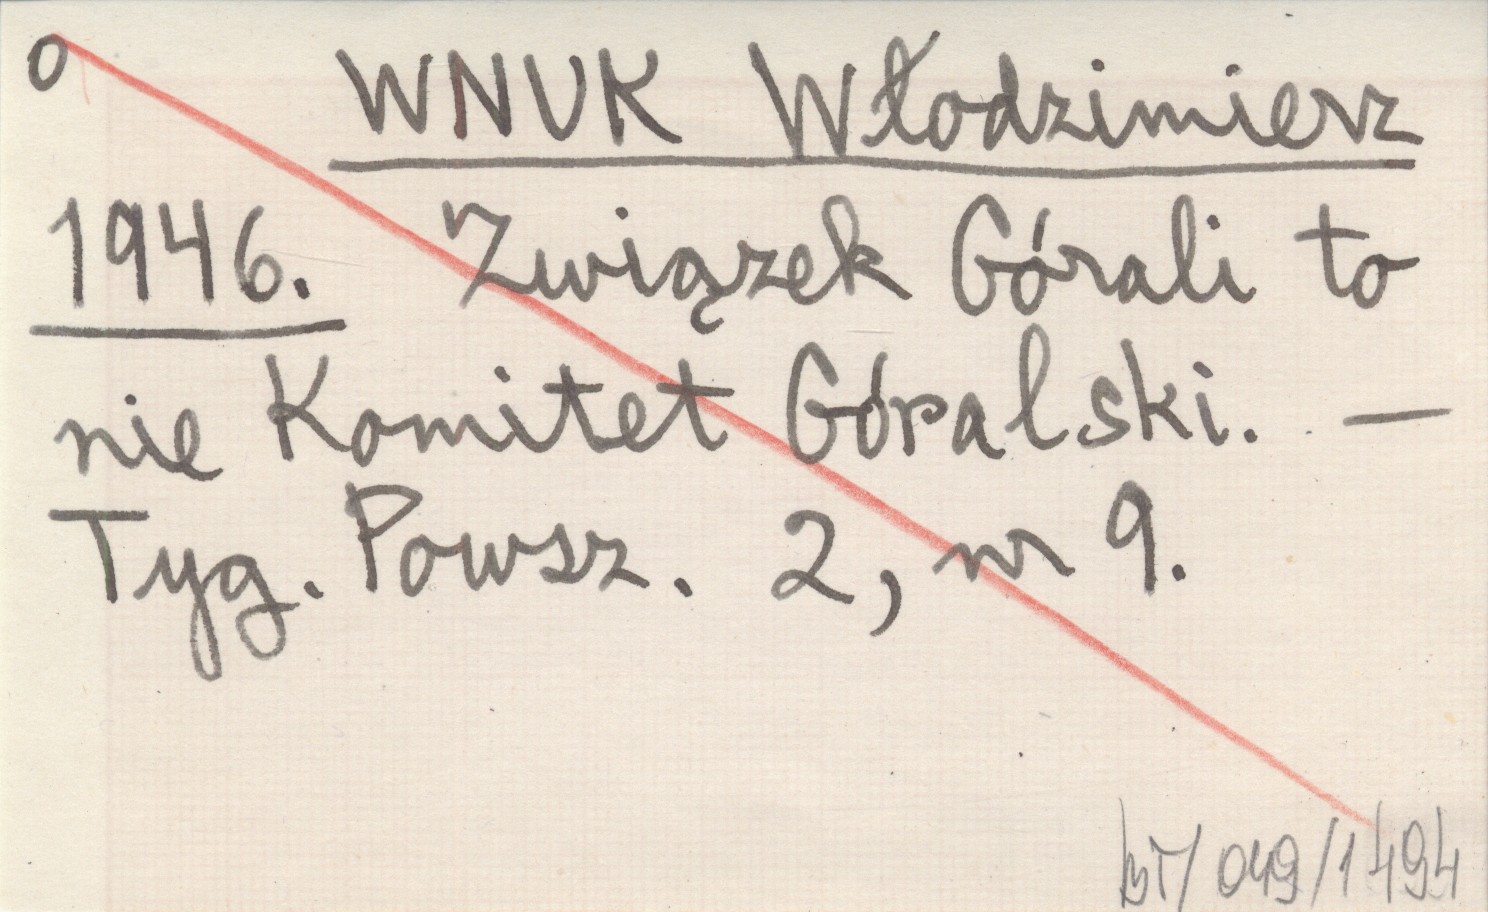 O WNUK Włodzimierz
1946. Związek Górali to
nie Komitet Góralski. —
Tyg. Powsz. 2, nr 9.
BT/049/1494